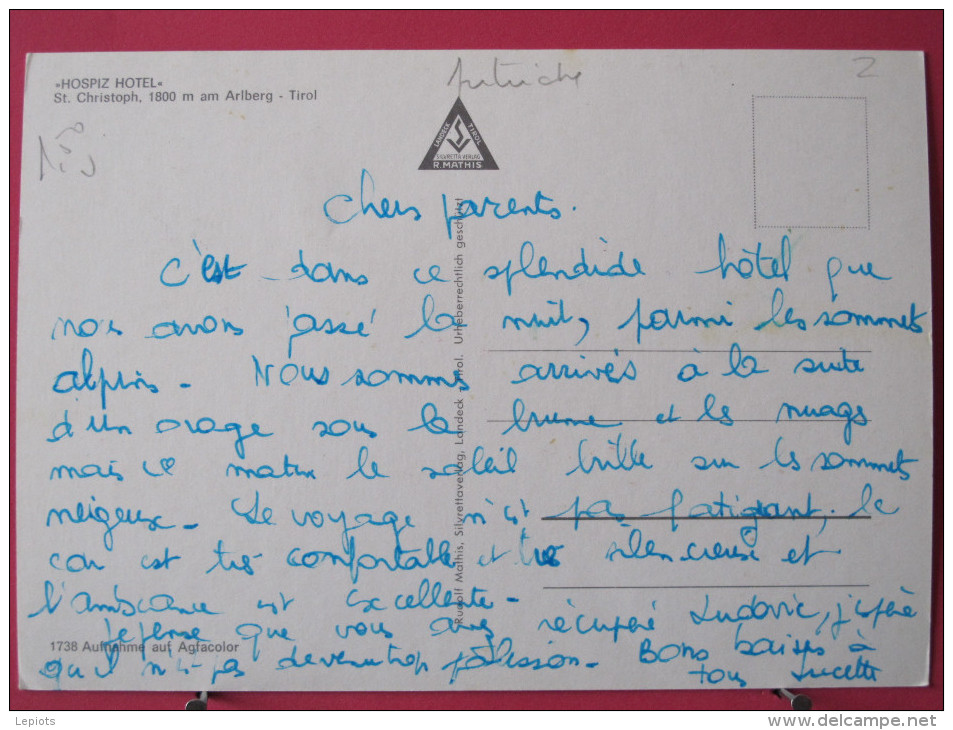 «HOSPIZ HOTEL»
St. Christoph, 1800 m am Arlberg - Tirol
Autriche
2
LANDECK TIROL
SILVRETTA VERLAG
R. MATHIS
Chers parents.
C'est dans ce splendide hôtel que
nous avons passé la nuit, parmi les sommets
alpins - Nous sommes arrivés à la suite
d'un orage sous la brume et les nuages
mais ce matin le soleil brille sur les sommets
neigeux - Le voyage n'est pas fatigant, le
car est très confortable et très silencieux et
l'ambiance est excellente -
Je pense que vous avez récupéré Ludovic, j'espère
qu'il n'est pas devenu trop polisson - Bons baisers à
tous Lucette
1738 Aufnahme auf Agfacolor
Rudolf Mathis, Silvrettaverlag, Landeck - Tirol. Urheberrechtlich geschützt
Lepiots
delcampe.net